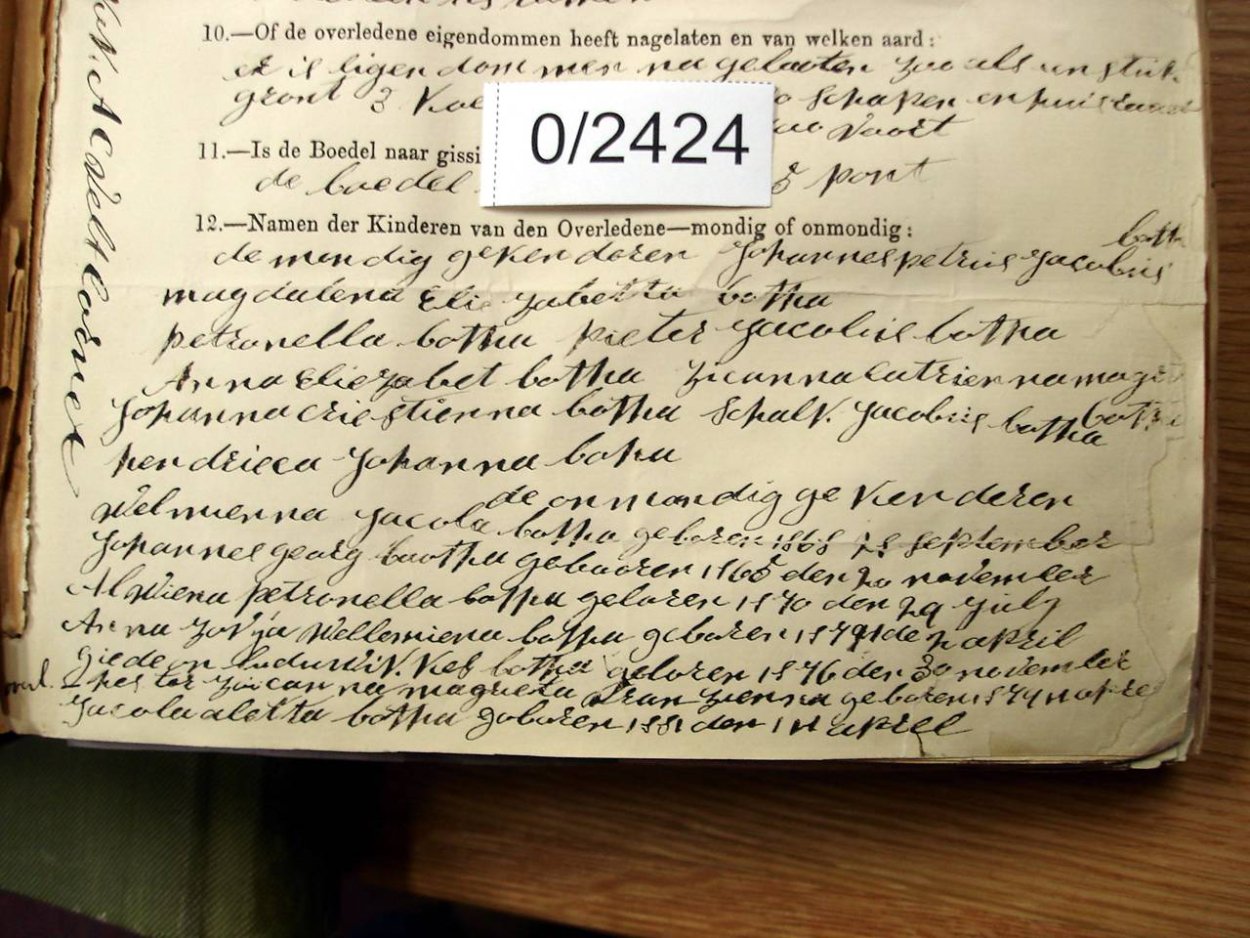 10.—Of de overledene eigendommen heeft nagelaten en van welken aard:
er is eigen dom men na gelaaten zoo als en stuk
gront 3 Koe schapen en huis raat
voort
11.—Is de Boedel naar gissi
de boedel pont
0/2424
12.—Namen der Kinderen van den Overledene—mondig of onmondig:
de mondig ge Kenderen Johannes petrus Jacobus both
magdalena Elie zabetta botha
petronella botha pieter Jacobus botha
Anna Eliezabet botha
Johanna criestienna botha Schalk. Jacobus botha
hendricca Johanna boha
de onmondig ge Kenderen
Welmienna Jacoba botha geboren 1868 september
Johannes georg bootha gebooren den 20 november
Alwiena petronella botha geboren 1870 den 29 July
Anna zovja Wellemiena botha geboren de april
giedeon botha geboren 1876 den 30 november
magrieta geboren
Jacoba aletta botha geboren 1881 den april